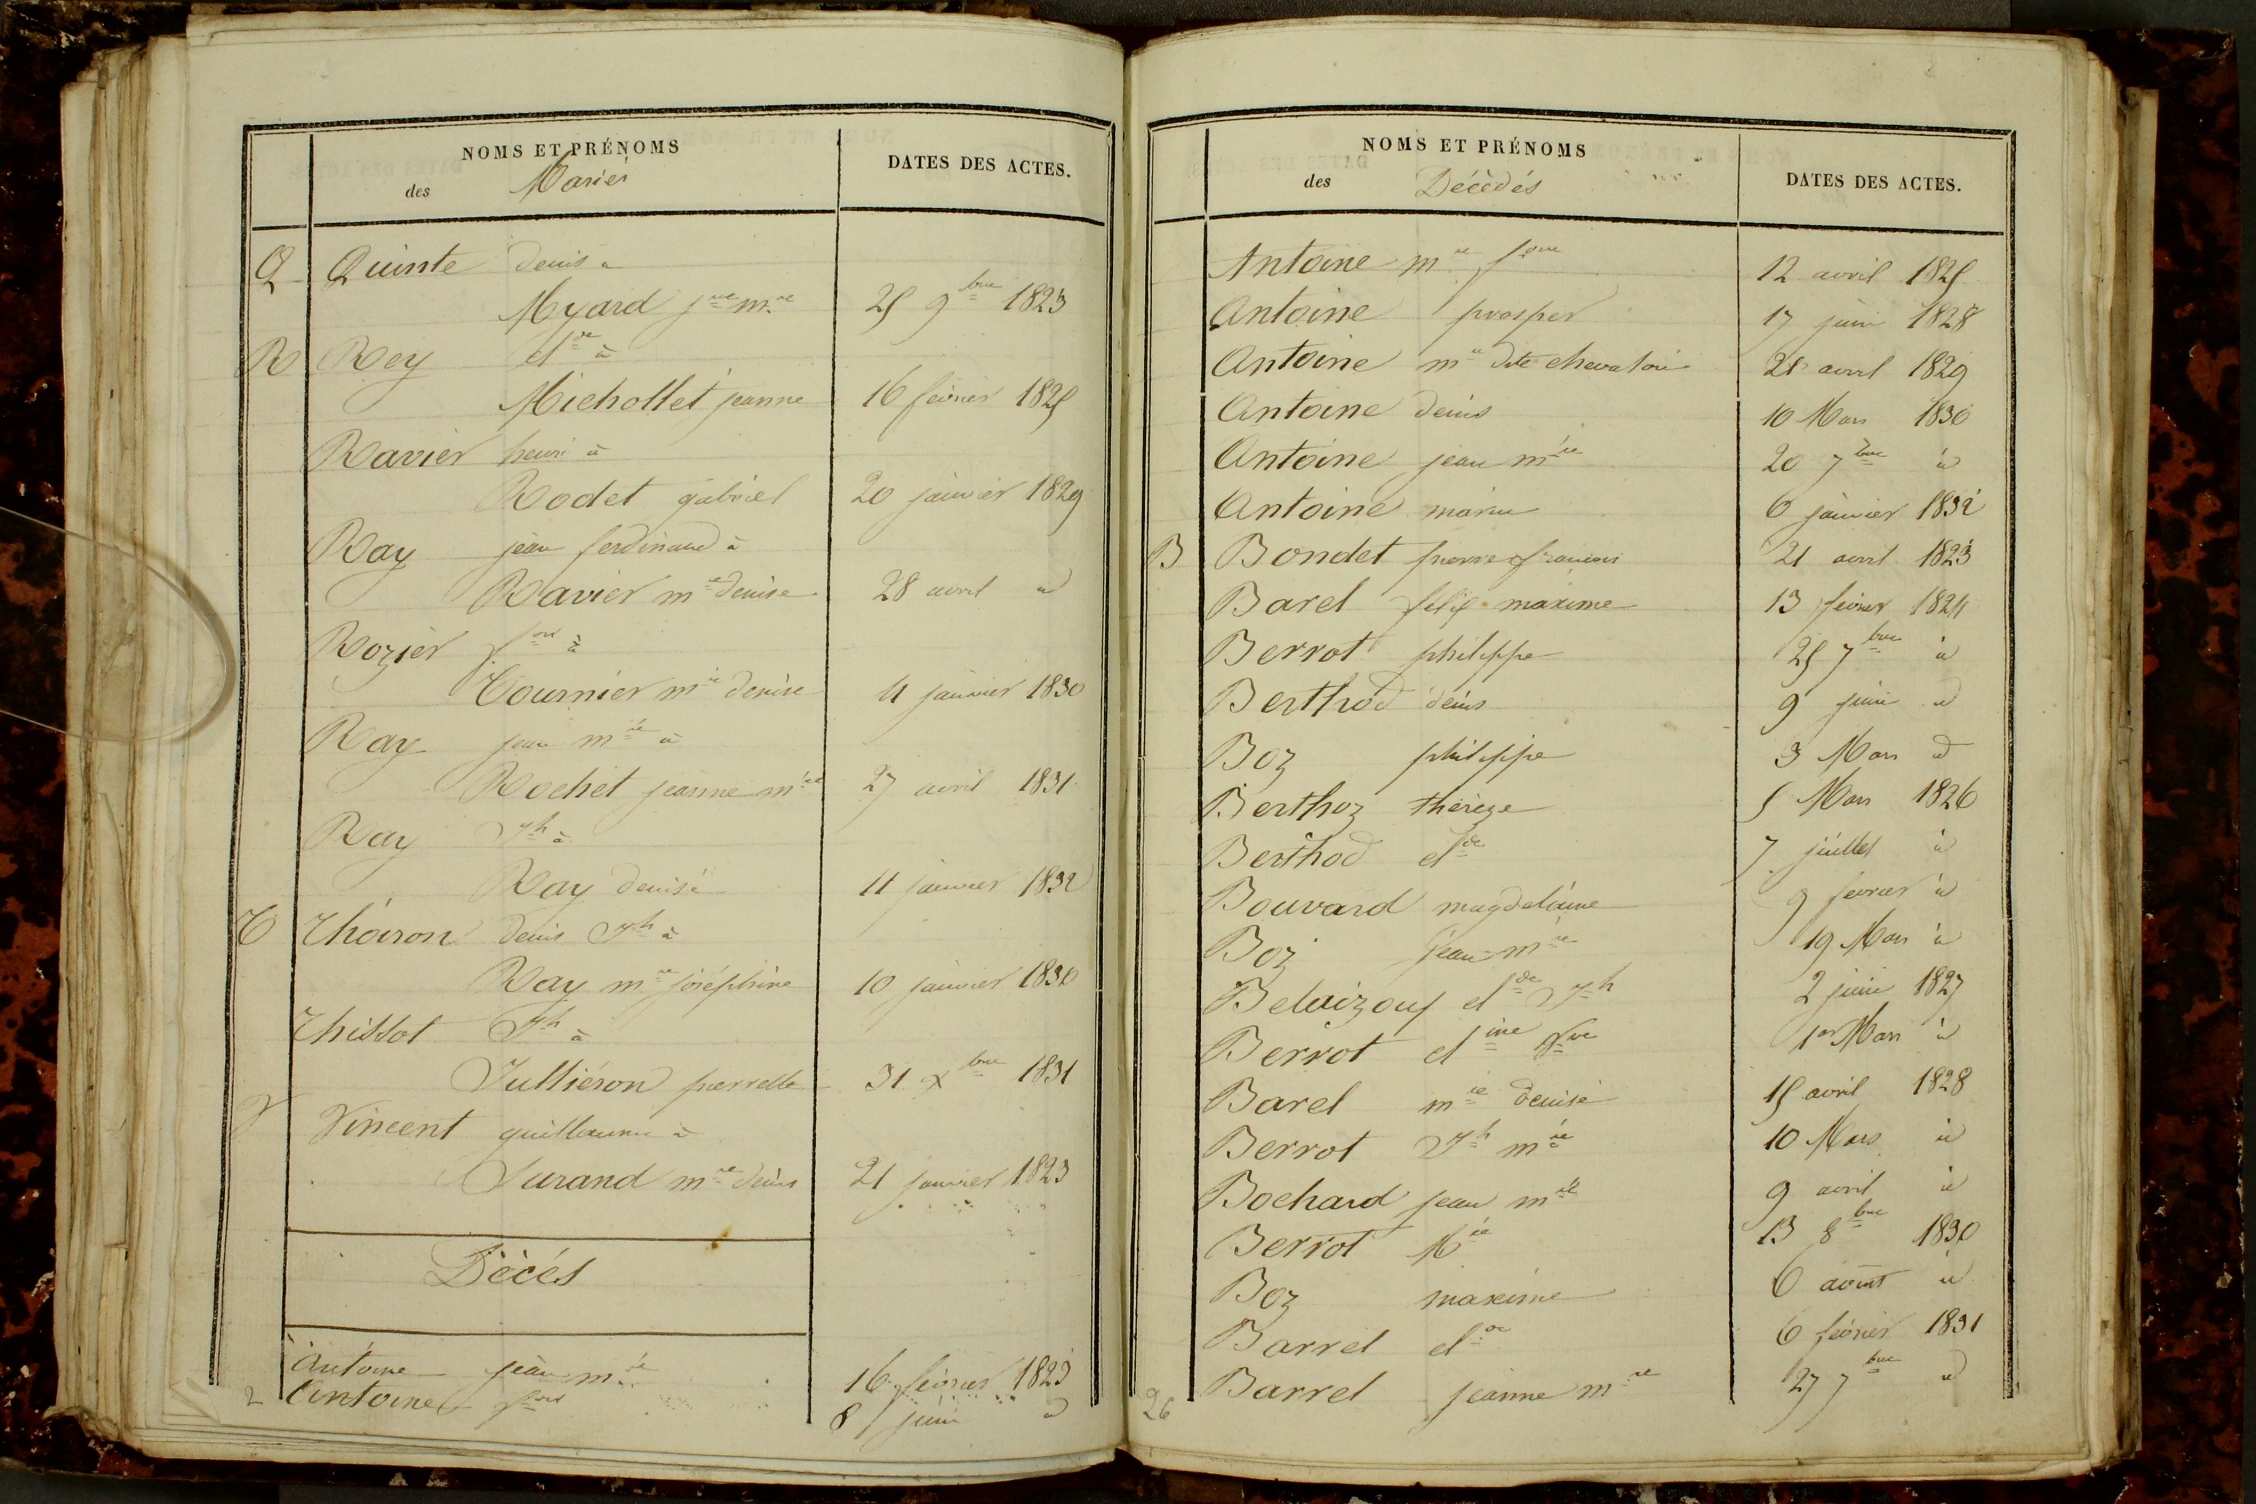 NOMS ET PRÉNOMS
des Mariés
DATES DES ACTES.
Q Quinte denis à
Myard jne mie 25 9bre 1823
R Rey cl de à
Michollet jeanne 16 février 1825
Ravier henri à
Rodet gabriel 20 janvier 1829
Ray jean ferdinand à
Ravier mie denise 28 avril id
Rozier fois à
Tournier mie denise 11 janvier 1830
Ray jean mie à
Rochet jeanne mie 27 avril 1831
Ray Jh à
Ray denise 11 janvier 1832
T Thoiron denis Jh à
Ray mie joséphine 10 janvier 1830
Thissot Jh à
Julliéron pierrette 31 xbre 1831
V Vincent guillaume à
Durand mie denis 21 janvier 1823
Décés
Antoine jean mie 16 février 1823
2 Antoine fois 8 juin id
NOMS ET PRÉNOMS
des Décédés
DATES DES ACTES.
Antoine mie foise 12 avril 1825
Antoine prosper 17 juin 1828
Antoine mie dite 28 avril 1829
Antoine denis 10 Mars 1830
Antoine jean mie 20 7bre id
Antoine marie 6 janvier 1832
B Bondet pierre françois 21 avril 1823
Barel félix maxime 13 février 1824
Berrot philippe 25 7bre id
Berthod denis 9 juin id
Boz philippe 3 Mars id
Berthoz thérèze 5 Mars 1826
Berthod cl de 7 juillet id
Bouvard magdelaine 9 février id
Boz jean mie 19 Mars id
Belaizouf cl de Jh 2 juin 1827
Berrot cl ine fse 1er Mars id
Barel mie denise 15 avril 1828
Berrot Jh mie 10 Mars id
Bochard jean mie 9 avril id
Berrot Mie 13 8bre 1830
Boz maxime 6 août id
Barrel cl de 6 février 1831
Barrel jeanne mie 27 7bre id
26